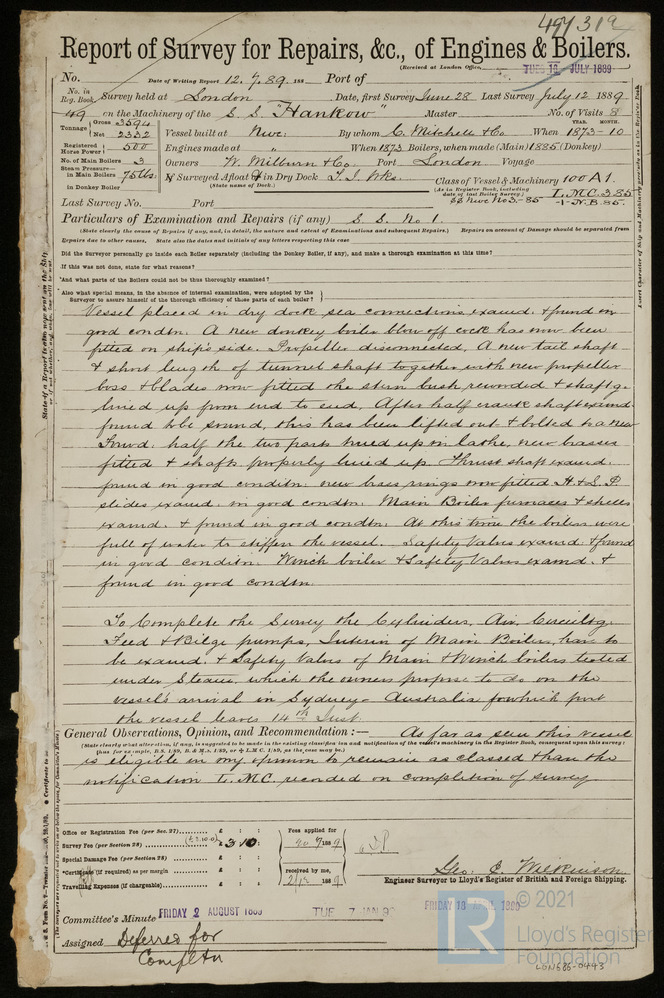 497319
Report of Survey for Repairs, &c., of Engines & Boilers.
(Received at London Office, TUES 16 JULY 1889
No. Date of Writing Report 12.7.89. 188 Port of
No. in Reg. Book. Survey held at London Date, first Survey June 28 Last Survey July 12 1889
49 on the Machinery of the S.S. "Hankow" Master No. of Visits 8
Tonnage Gross 3594 Net 2332 Vessel built at Nwc. By whom C. Mitchell & Co. When 1873-10 YEAR. MONTH.
Registered Horse Power 500 Engines made at " When 1873 Boilers, when made (Main) 1885 (Donkey)
No. of Main Boilers 3 Owners W. Milburn & Co. Port London Voyage
Steam Pressure— in Main Boilers 75 lbs. If Surveyed Afloat or in Dry Dock T.I. Wks. Class of Vessel & Machinery 100 A1.
in Donkey Boiler (State name of Dock.) (As in Register Book, including date of last Boiler Survey.) L.M.C. 3.85
SS Nwc No 3.-85 N.B. 85.
Last Survey No. Port
Particulars of Examination and Repairs (if any) S.S. No 1.
(State clearly the cause of Repairs if any, and, in detail, the nature and extent of Examinations and subsequent Repairs.) Repairs on account of Damage should be separated from
Repairs due to other causes. State also the dates and initials of any letters respecting this case
Did the Surveyor personally go inside each Boiler separately (including the Donkey Boiler, if any), and make a thorough examination at this time?
If this was not done, state for what reasons?
And what parts of the Boilers could not be thus thoroughly examined?
Also what special means, in the absence of internal examination, were adopted by the Surveyor to assure himself of the thorough efficiency of those parts of each boiler?
Vessel placed in dry dock sea connections examd. & found in
good condtn. A new donkey boiler blow off cock has now been
fitted on ship's side. Propeller disconnected. A new tail shaft
& short length of tunnel shaft together with new propeller
boss & blades now fitted the stern bush rewooded & shaftg.
lined up from end to end. After half crank shaft examd.
found to be sound, this has been lifted out & bolted to a new
Forwd. half the two parts trued up in lathe, new brasses
fitted & shafts properly lined up. Thrust shaft examd.
found in good conditn. new brass rings now fitted H. & L. P.
slides examd. in good condtn. Main Boiler furnaces & shells
examd. & found in good condtn. At this time the boilers were
full of water to stiffen the vessel. Safety Valves examd. & found
in good conditon. Winch boiler & Safety Valves examd. &
found in good condtn.
To Complete the Survey the Cylinders, Air, Circultg.
Feed & Bilge pumps, Interior of Main Boilers, have to
be examd. & Safety Valves of Main & Winch boilers tested
under Steam, which the owners propose to do on the
vessel's arrival in Sydney - Australia for which port
the vessel leaves 14th Inst.
General Observations, Opinion, and Recommendation :— As far as seen this vessel
(State clearly what alteration, if any, is suggested to be made in the existing classification and notification of the vessel's machinery in the Register Book, consequent upon this survey;
thus for example, B.S. 1/89, B. & M.S. 1/89, or L.M.C. 1/89, as the case may be.)
is eligible in my opinion to remain as classed than the
notification L.M.C. recorded on completion of survey
Office or Registration Fee (per Sec. 27) £ : : Fees applied for
Survey Fee (per Section 28) £ 3 10 : 20.7 1889
Special Damage Fee (per Section 28) £ : :
Certificate (if required) as per margin £ : : received by me,
Travelling Expenses (if chargeable) £ : : 1889
Geo. C. Wilkinson
Engineer Surveyor to Lloyd's Register of British and Foreign Shipping.
Committee's Minute FRIDAY 2 AUGUST 1889 TUE 7 JAN 90 FRIDAY
Assigned Deferred for
Completn
© 2021
LR
Lloyd's Register
Foundation
LON686-0443